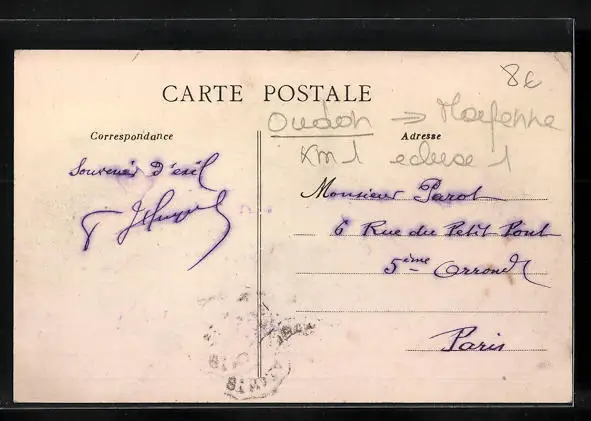 8€
CARTE POSTALE
Oudon → Mayenne
Correspondance
Adresse
Km 1 écluse 1
Souvenir d'exil
Monsieur Parot
6 Rue du Petit Pont
5ème Arrondt
Paris